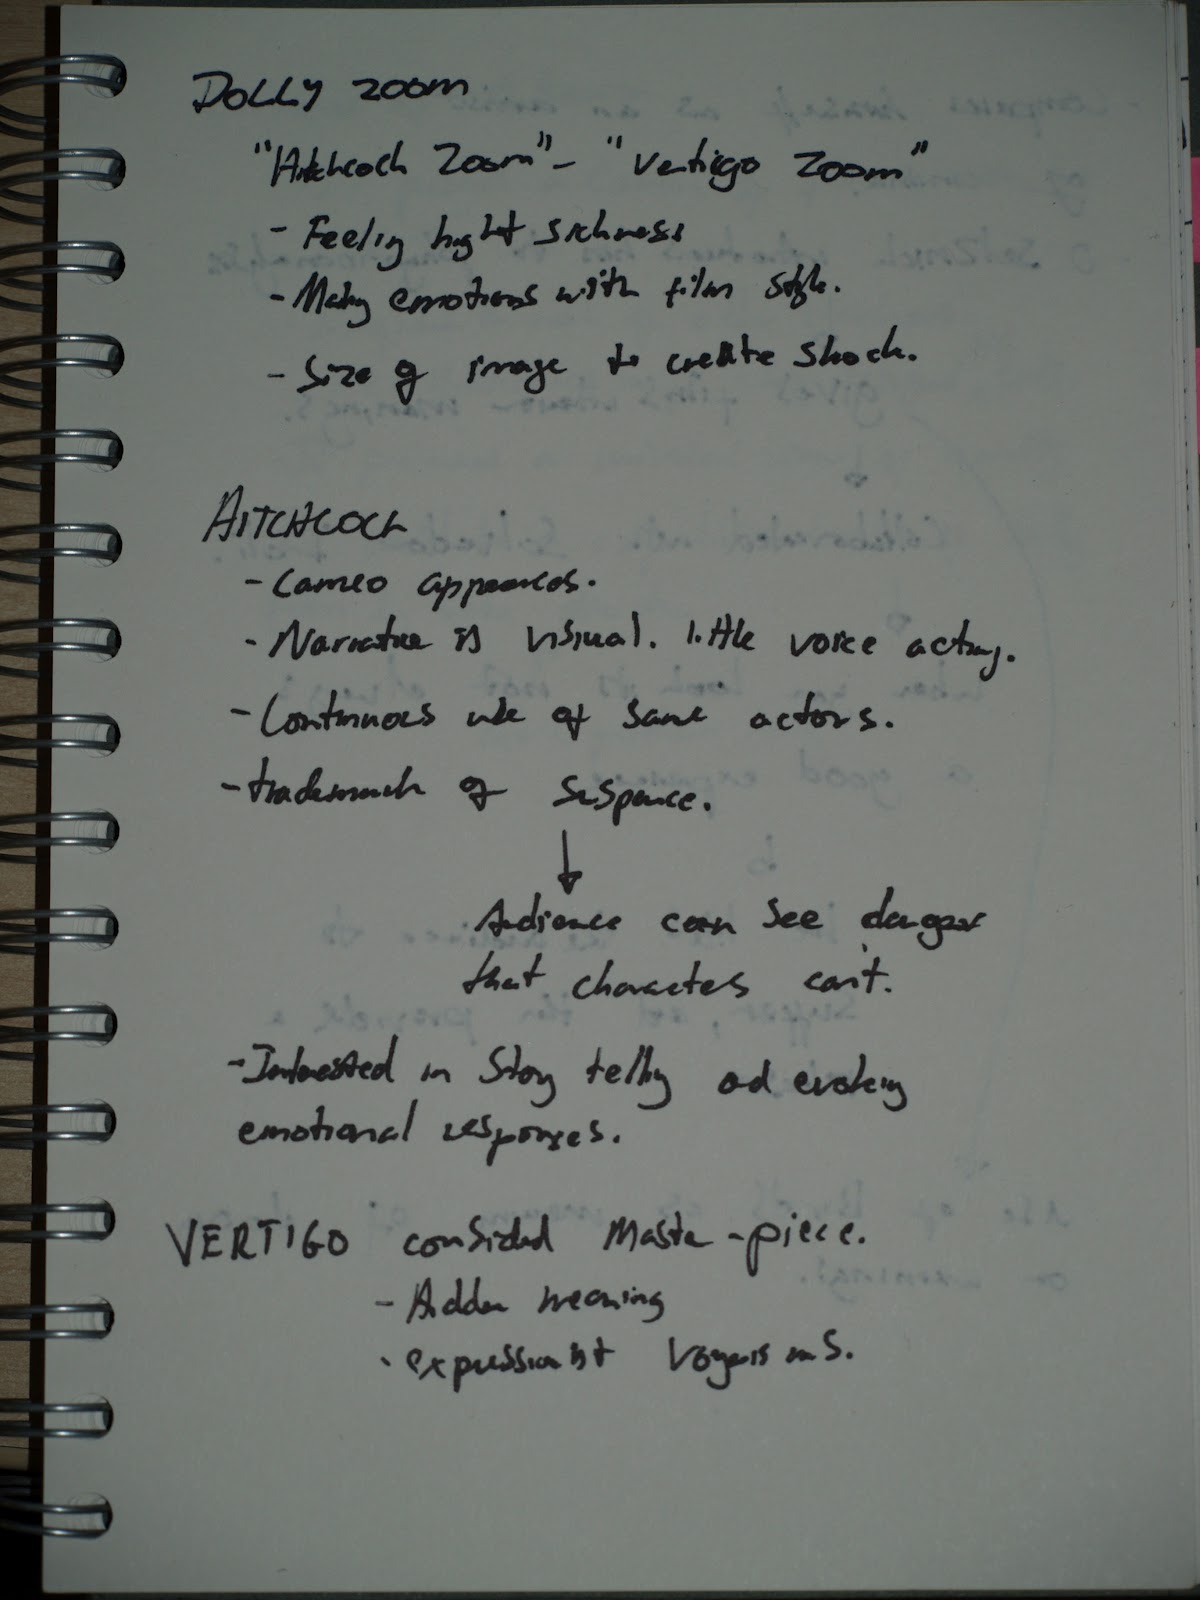 DOLLY ZOOM
"Hitchcock Zoom" - "Vertigo Zoom"
- Feeling hight sickness
- Making emotions with film style.
- Size of image to create shock.
HITCHCOCK
- Cameo appearances.
- Narrative is visual. little voice acting.
- Continuous use of same actors.
- trademark of suspence.
↓
Audience can see danger
that characters can't.
- Interested in Story telling and evoking
emotional responses.
VERTIGO considered Master-piece.
- Hidden meaning
- expressionist